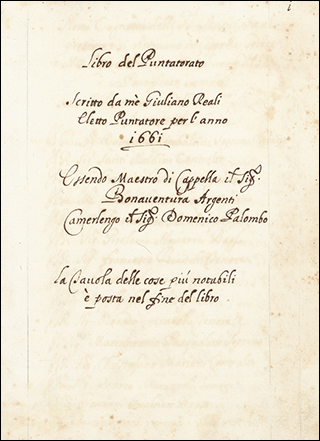 Libro del Puntatorato
Scritto da mè Giuliano Reali
Eletto Puntatore per l'anno
1661
Essendo Maestro di Cappella il Sig.
Bonaventura Argenti
Camerlengo il Sig. Domenico Palombo
la Tavola delle cose più notabili
è posta nel fine del libro